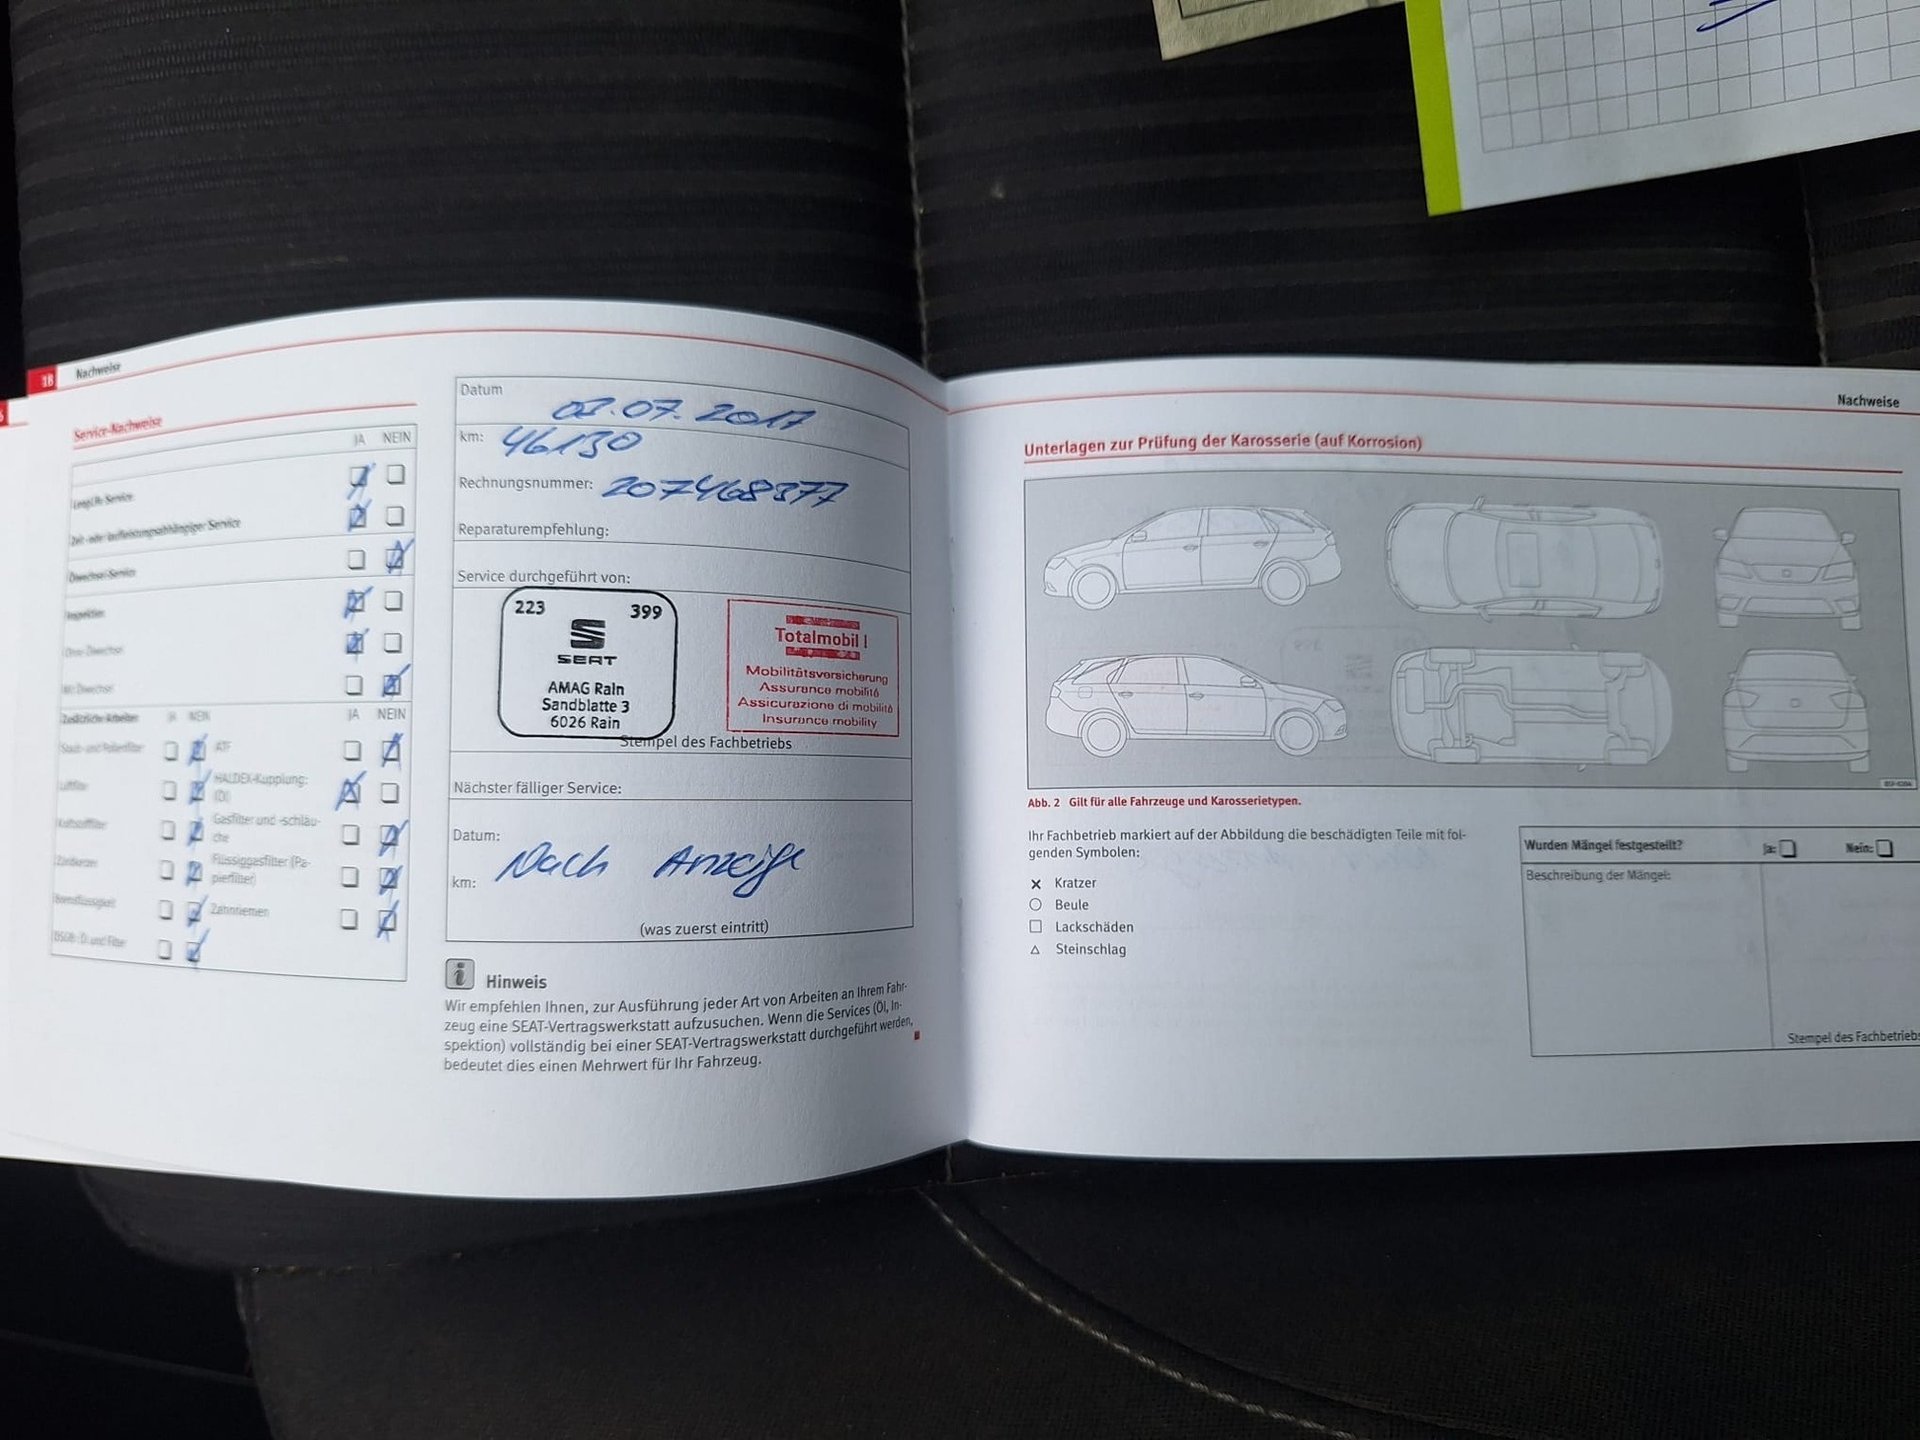 18 Nachweise
Service-Nachweise
JA NEIN
LongLife Service
Zeit- oder laufleistungsabhängiger Service
Ölwechsel-Service
Inspektion
Ohne Ölwechsel
Mit Ölwechsel
Zusätzliche Arbeiten JA NEIN
JA NEIN
Staub- und Pollenfilter
ATF
Luftfilter
HALDEX-Kupplung:
(Öl)
Kraftstofffilter
Gasfilter und -schläu-
che
Zündkerzen
Flüssiggasfilter (Pa-
pierfilter)
Bremsflüssigkeit
Zahnriemen
DSG®: Öl und Filter
Datum
07.2017
km: 46130
Rechnungsnummer: 207468377
Reparaturempfehlung:
Service durchgeführt von:
223 399
SEAT
AMAG Rain
Sandblatte 3
6026 Rain
Totalmobil !
Mobilitätsversicherung
Assurance mobilité
Assicurazione di mobilità
Insurance mobility
Stempel des Fachbetriebs
Nächster fälliger Service:
Datum:
Nach Anzeige
km:
(was zuerst eintritt)
Hinweis
Wir empfehlen Ihnen, zur Ausführung jeder Art von Arbeiten an Ihrem Fahr-
zeug eine SEAT-Vertragswerkstatt aufzusuchen. Wenn die Services (Öl, In-
spektion) vollständig bei einer SEAT-Vertragswerkstatt durchgeführt werden,
bedeutet dies einen Mehrwert für Ihr Fahrzeug.
Nachweise
Unterlagen zur Prüfung der Karosserie (auf Korrosion)
Abb. 2 Gilt für alle Fahrzeuge und Karosserietypen.
Ihr Fachbetrieb markiert auf der Abbildung die beschädigten Teile mit fol-
genden Symbolen:
Kratzer
Beule
Lackschäden
Steinschlag
Wurden Mängel festgestellt? Ja: Nein:
Beschreibung der Mängel:
Stempel des Fachbetriebs